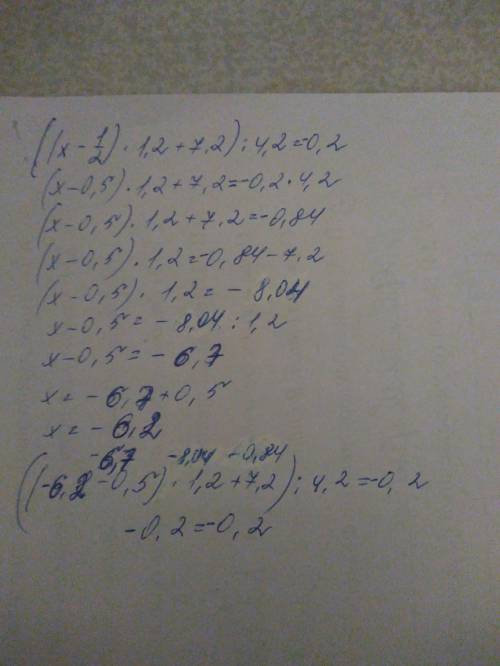 ((x-1/2)·1,2+7,2):4,2=-0,2
(x-0,5)·1,2+7,2=-0,2·4,2
(x-0,5)·1,2+7,2=-0,84
(x-0,5)·1,2=-0,84-7,2
(x-0,5)·1,2=-8,04
x-0,5=-8,04:1,2
x-0,5=-6,7
x=-6,7+0,5
x=-6,2
-6,7 -8,04 -0,84
((-6,2-0,5)·1,2+7,2):4,2=-0,2
-0,2=-0,2